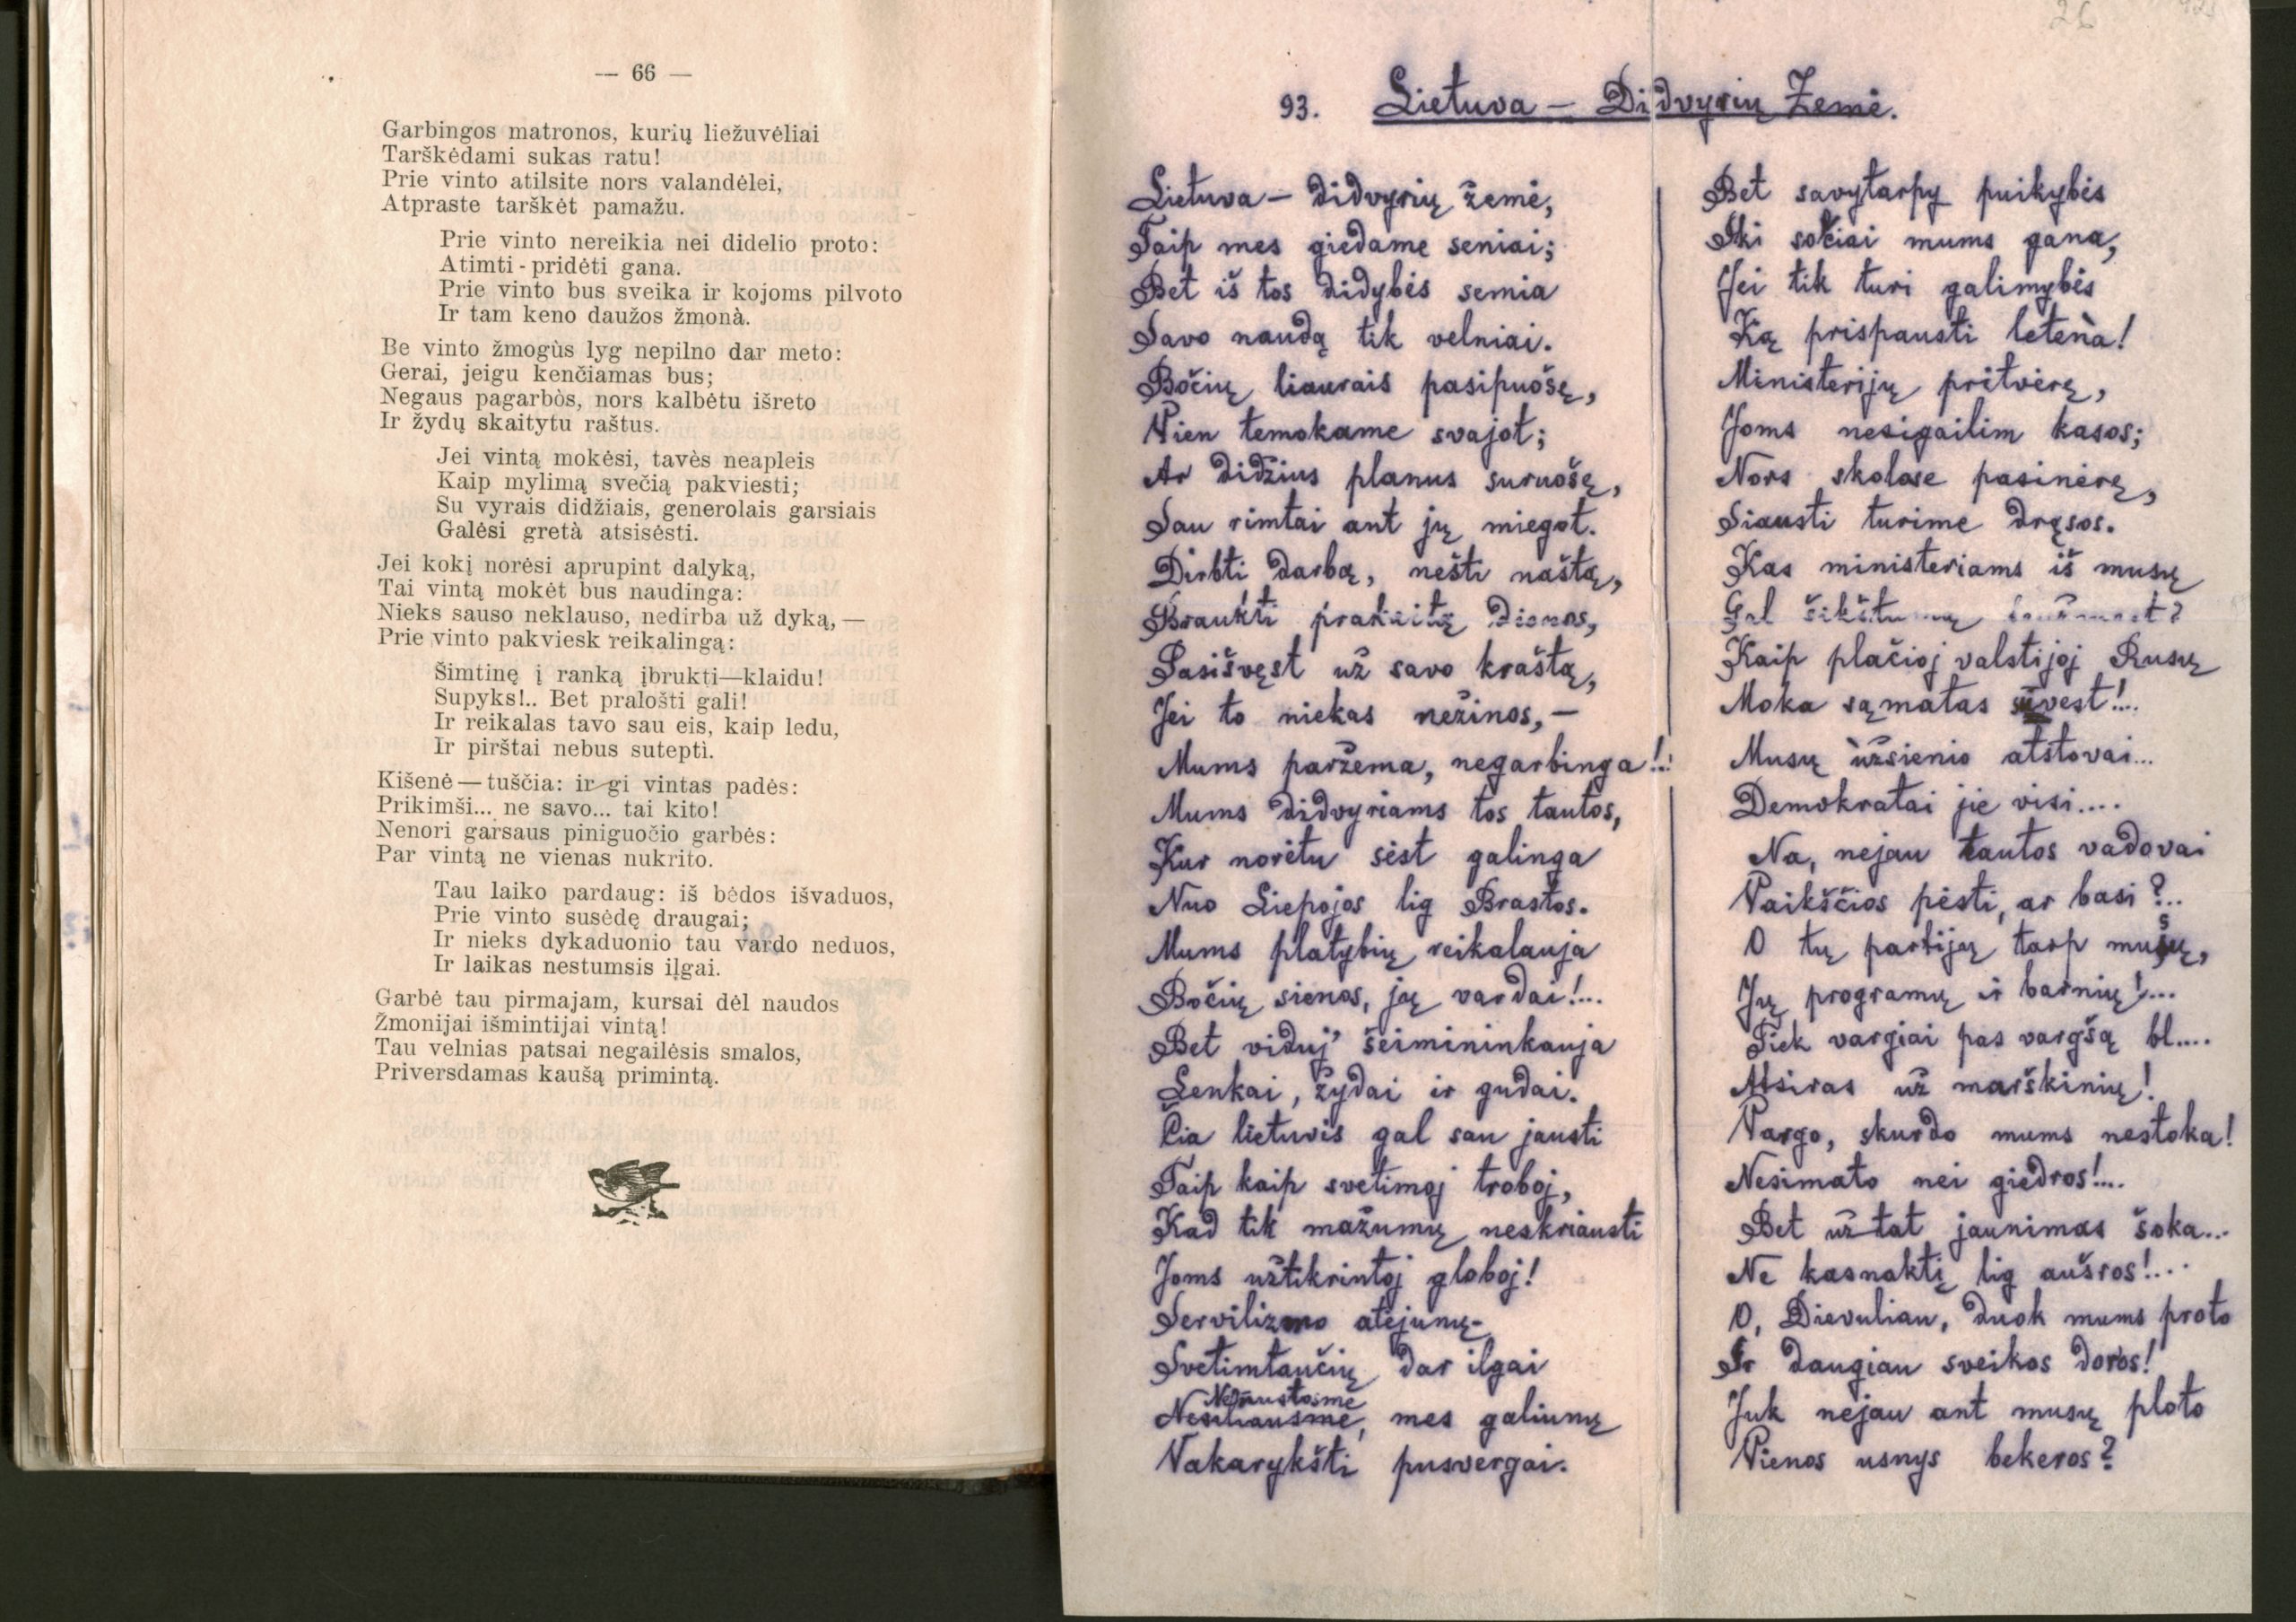 — 66 —
Garbingos matronos, kurių liežuvėliai
Tarškėdami sukas ratu!
Prie vinto atilsite nors valandėlei,
Atpraste tarškėt pamažu.
Prie vinto nereikia nei didelio proto:
Atimti - pridėti gana.
Prie vinto bus sveika ir kojoms pilvoto
Ir tam keno daužos žmonà.
Be vinto žmogùs lyg nepilno dar meto:
Gerai, jeigu kenčiamas bus;
Negaus pagarbòs, nors kalbėtu išreto
Ir žydų skaitytu raštus.
Jei vintą mokėsi, tavès neapleis
Kaip mylimą svečią pakviesti;
Su vyrais didžiais, generolais garsiais
Galėsi gretà atsisėsti.
Jei kokį norėsi aprupint dalyką,
Tai vintą mokėt bus naudinga:
Nieks sauso neklauso, nedirba už dyką, —
Prie vinto pakviesk reikalingą:
Šimtinę į ranką įbrukti—klaidu!
Supyks!.. Bet pralošti gali!
Ir reikalas tavo sau eis, kaip ledu,
Ir pirštai nebus suteptì.
Kišenė — tuščia: ir gi vintas padės:
Prikimši... ne savo... tai kito!
Nenori garsaus piniguočio garbės:
Par vintą ne vienas nukrito.
Tau laiko pardaug: iš bėdos išvaduos,
Prie vinto susėdę draugai;
Ir nieks dykaduonio tau vardo neduos,
Ir laikas nestumsis ilgai.
Garbė tau pirmajam, kursai dėl naudos
Žmonijai išmintijai vintą!
Tau velnias patsai negailėsis smalos,
Priversdamas kaušą primintą.
26
93. Lietuva — Didvyrių Žemė.
Lietuva — didvyrių žemė,
Taip mes giedame seniai;
Bet iš tos didybės semia
Savo naudą tik velniai.
Bočių liaurais pasipuošę,
Vien temokame svajot;
Ar didžius planus suruošę,
Sau rimtai ant jų miegot.
Dirbti darbą, nešti naštą,
Braukti prakaitą dienos,
Pasišvęst už savo kraštą,
Jei to niekas nežinos, —
Mums paržema, negarbinga!..
Mums didvyriams tos tautos,
Kur norėtu sėst galinga
Nuo Liepojos lig Brastos.
Mums platybių reikalauja
Bočių sienos, jų vardai!...
Bet viduj' šeimininkauja
Lenkai, žydai ir gudai.
Čia lietuvis gal sau jausti
Taip kaip svetimoj troboj,
Kad tik mažumų neskriausti
Joms užtikrintoj globoj!
Servilizmo atėjunų-
Svetimtaučių dar ilgai
Nesiliausme, mes galiunų
Vakarykšti pusvergai.
Bet savytarpy puikybės
Iki sočiai mums gana,
Jei tik turi galimybės
Ką prispausti letena!
Ministerijų pritvėrę,
Joms nesigailim kasos;
Nors skolose pasinėrę,
Siausti turime drąsos.
Kas ministeriams iš musų
Gal šikštumą
Kaip plačioj valstijoj Rusų
Moka sąmatas suvest!...
Musų užsienio atstovai...
Demokratai jie visi....
Na, nejau tautos vadovai
Vaikščios pėsti, ar basi?..
O tų partijų tarp musų,
Jų programų ir barnių!...
Tiek vargiai pas vargšą bl....
Atsiras už marškinių!
Vargo, skurdo mums nestoka!
Nesimato nei giedros!...
Bet už tat jaunimas šoka...
Ne kasnaktį lig aušros!...
O, Dievuliau, duok mums proto
Ir daugiau sveikos doros!
Juk nejau ant musų ploto
Vienos usnys bekeros?